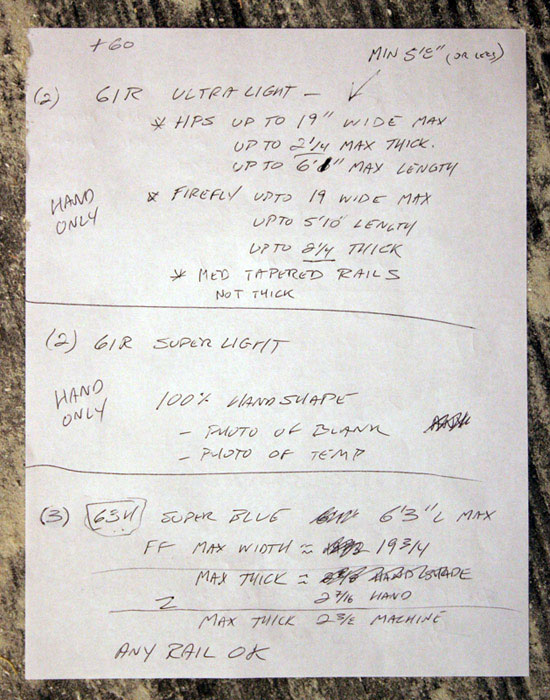 +60
MIN 5'8" (OR LESS)
(2) 61R ULTRA LIGHT -
* HPS UP TO 19" WIDE MAX
UP TO 2 1/4 MAX THICK.
UP TO 6' " MAX LENGTH
HAND ONLY
* FIREFLY UPTO 19 WIDE MAX
UPTO 5'10 LENGTH
UPTO 2 1/4 THICK
* MED TAPERED RAILS
NOT THICK
(2) 61R SUPER LIGHT
HAND ONLY
100% HANDSHAPE
- PHOTO OF BLANK
- PHOTO OF TEMP
(3) SUPER BLUE 6'3" L MAX
FF MAX WIDTH ≈ 19 3/4
MAX THICK ≈
2 7/16 HAND
MAX THICK 2 3/8 MACHINE
ANY RAIL OK